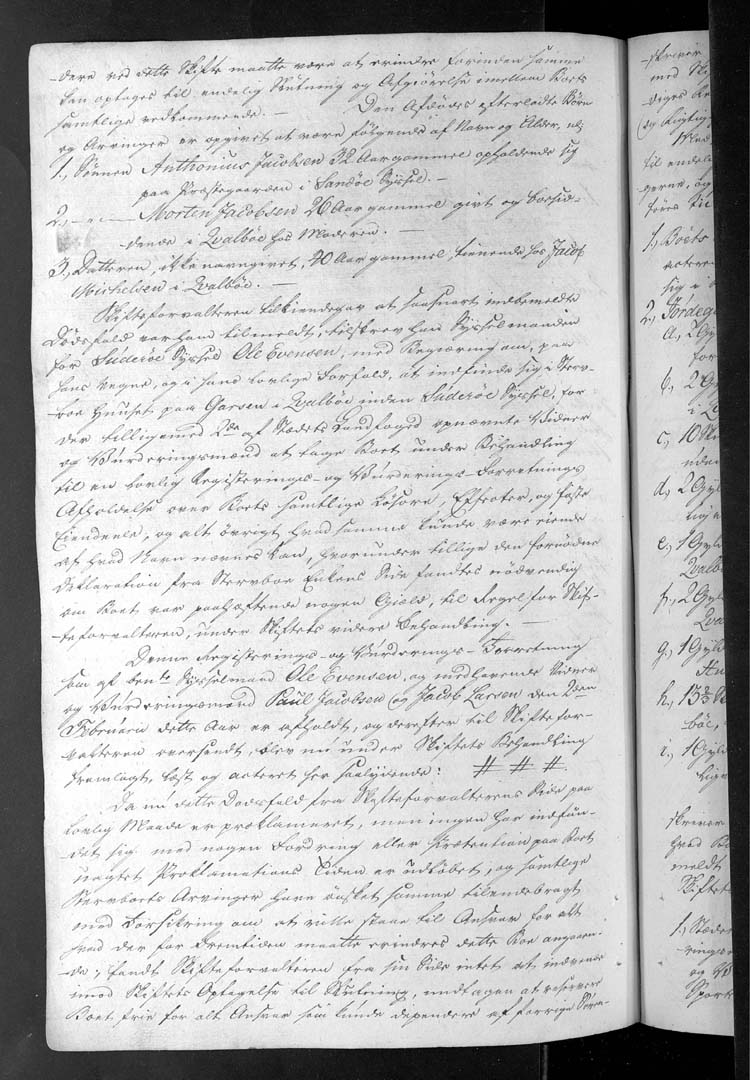 -dere ved dette Skifte maatte være at erindre forinden samme
kan optages til endelig Slutning og Afgiørelse imellem Boets
samtlige vedkommende. — Den Afdøds efterladte Børn
og Arvinger er opgivet at være følgende af Navn og Alder, als
1., Sønnen Anthonius Jacobsen 32 Aar gammel opholdende sig
paa Præstegaarden i Sandøe Syssel. —
2., — — Morten Jacobsen 26 Aar gammel givt og boesid-
dende i Qvalbøe hos Moderen. —
3., Datteren, ikke navngivet, 40 Aar gammel, tienende hos Jacob
Michelsen i Qvalbøe. —
Skifteforvalteren tilkiendegav at saasnart indbemeldte
Dødsfald var ham tilmeldt, tilskrev han Sysselmanden
for Süderøe Syssel Ole Evensen, med Begiæring om, paa
hans Vegne, og i hans lovlige Forfald, at indfinde sig i Sterv-
boe Huuset paa Garsen i Qvalbøe inden Süderøe Syssel, for
der tilligemed 2de af Stædets Landfoged opnævnte Vidner
og Vurderingsmænd at tage Boet under Behandling
til en lovlig Registerings- og Vurderings-Forretnings
Afholdelse over Boets samtlige Løsøre, Effecter, og faste
Eiendeele, og alt øvrigt hvad samme kunde være eiende
af hvad Navn nævnes kan, hvorunder tillige den fornødne
Declaration fra Stervboe Enkens Side fandtes nødvendig
om Boet var paahæftende nogen Giæld, til Regel for Skif-
teforvalteren, under Skiftets videre Behandling. —
Denne Registerings- og Vurderings-Forretning
som af bemte Sysselmand Ole Evensen, og medhavende Vidner
og Vurderingsmænd Paul Jacobsen og Jacob Larsen den 2den
Februarii dette Aar er afholdt, og derefter til Skiftefor-
valteren oversendt, blev nu under Skiftets Behandling
fremlagt, læst og acteret her saalydende: # # #.
Da nu dette Dødsfald fra Skifteforvalterens Side paa
lovlig Maade er proklameret, men ingen har indfun-
det sig med nogen Fordring eller Prætention paa Boet
uagtet Proklamations Tiden er udløbet, og samtlige
Stervboets Arvinger have ønsket samme tilendebragt
med Forsikring om at ville staae til Ansvar for alt
hvad der for Fremtiden maatte erindres dette Boe angaaen-
de; fandt Skifteforvalteren fra sin Side intet at indvende
imod Skiftets Optagelse til Slutning, undtagen at reservere
Boet frie for alt Ansvar som kunde dependere af forrige